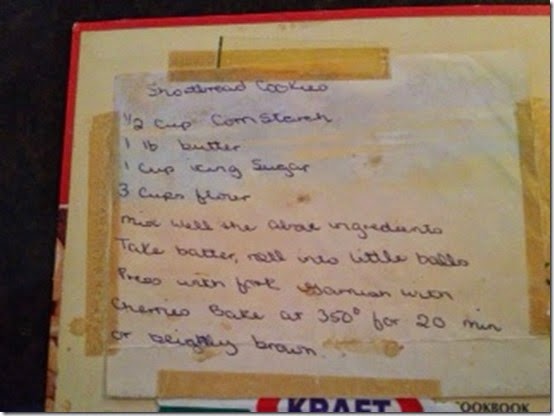 Shortbread Cookies
1/2 Cup Corn Starch
1 lb butter
1 Cup icing Sugar
3 Cups flour
mix well the above ingredients
Take batter, roll into little balls
Press with fork Garnish with
Cherries Bake at 350° for 20 min
or brightly brown.
KRAFT
OOKBOOK